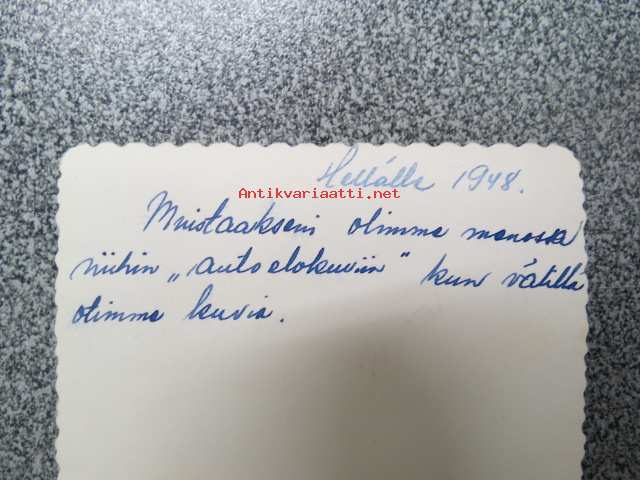 Hellällä 1948.
Antikvariaatti.net
Muistaakseni olimme menossa
niihin „autoelokuviin" kun välillä
otimme kuvia.